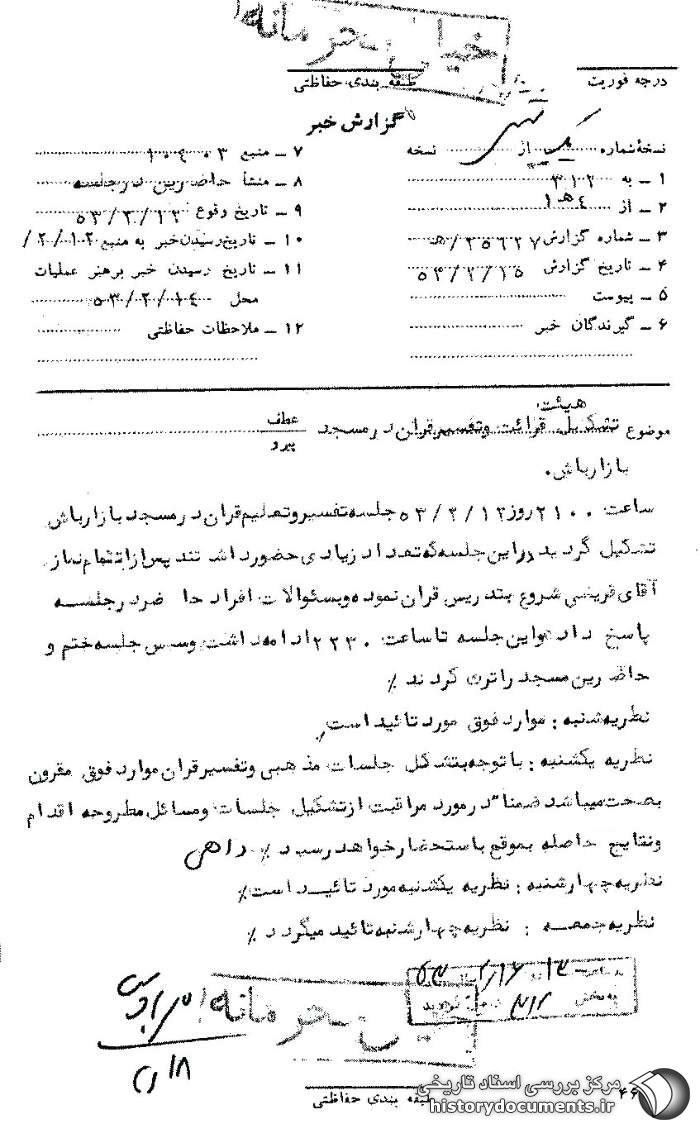 خیلی محرمانه
درجه فوریت
طبقه بندی حفاظتی
گزارش خبر
نسخهٔ شماره یک از نسخه
۱ ـ به ۳۱۲
۲ ـ از ۴ هـ ۱
۳ ـ شماره گزارش ۲۵۶۲۷/هـ
۴ ـ تاریخ گزارش ۵۳/۲/۱۵
۵ ـ پیوست
۶ ـ گیرندگان خبر
۷ ـ منبع ۱۰۴۰۳
۸ ـ منشأ حاضرین درجلسه
۹ ـ تاریخ وقوع ۵۳/۲/۱۲
۱۰ ـ تاریخ رسیدن خبر به منبع ۲/۰۱۲/
۱۱ ـ تاریخ رسیدن خبر برهبر عملیات
محل ۵۳/۰۲/۰۱۴
۱۲ ـ ملاحظات حفاظتی
هیئت
موضوع تشکیل قرائت وتفسیرقران درمسجد عطف
پیرو
بازارباش.
ساعت ۲۱۰۰روز ۵۳/۲/۱۲ جلسه تفسیروتعلیم قران درمسجدبازارباش
تشکیل گردید دراین جلسه که تعداد زیادی حضورداشتند پس ازاتمام نماز
آقای قریشی شروع بتدریس قران نموده وبسئوالات افراد حا ضردرجلسه
پاسخ داد واین جلسه تاساعت ۲۲۳۰ ادامه داشت وسپس جلسه ختم و
حاضرین مسجد راترک کردند ٪
نظریه شنبه : مواردفوق مورد تائیداست.
نظریه یکشنبه : باتوجه بتشکل جلسات مذهبی وتفسیرقران مواردفوق مقرون
بصحت میباشد ضمنا"درمورد مراقبت ازتشکیل جلسات ومسائل مطروحه اقدام
ونتایج حاصله بموقع باستحضارخواهدرسید ٪ داهی
نظریه چهارشنبه : نظریه یکشنبه مورد تائیداست٪
نظریه جمعه : نظریه چهارشنبه تائید میگردد ٪
ساعت ۱۳ روز ۲/۱۶ ۵۳
به بخش ۳۱۲ گردید
خیلی محرمانه
طبقه بندی حفاظتی
۴۶
مرکز بررسی اسناد تاریخی
historydocuments.ir